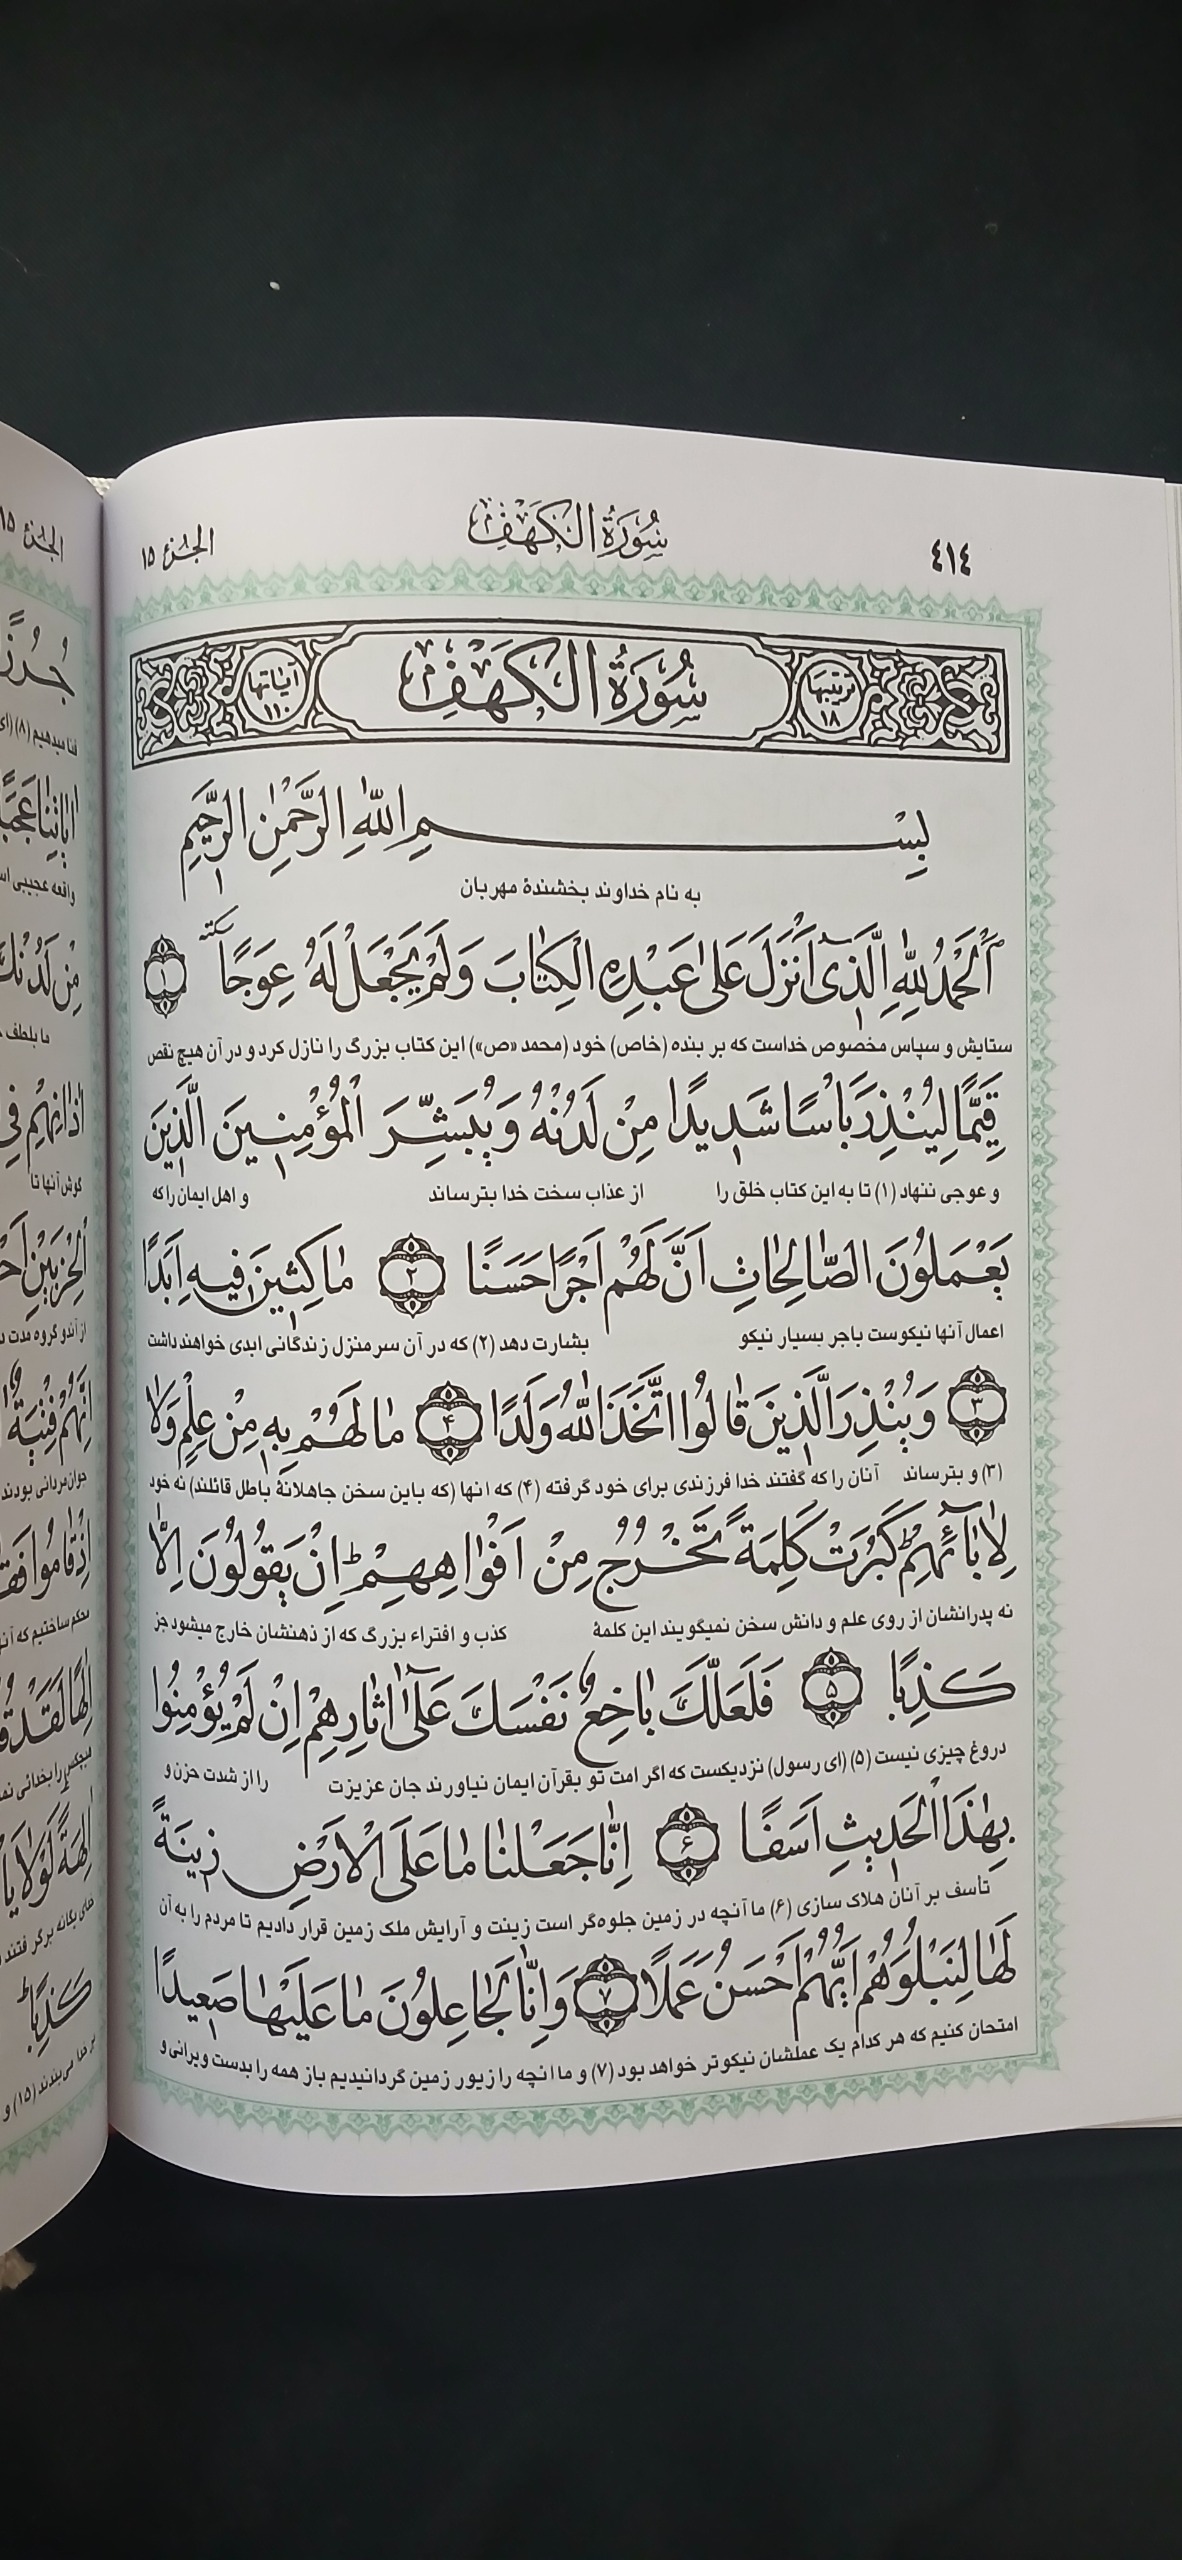 ٤١٤
سُورَةُ الْكَهْفِ
الجزء ۱۵
ترتیبها ۱۸
سُورَةُ الْكَهْفِ
آیاتها ۱۱۰
بِسْمِ اللّٰهِ الرَّحْمٰنِ الرَّحِيمِ
به نام خداوند بخشندهٔ مهربان
اَلْحَمْدُ لِلّٰهِ الَّذٖٓى اَنْزَلَ عَلٰى عَبْدِهِ الْكِتٰابَ وَلَمْ يَجْعَلْ لَهُ عِوَجًا سكته ۱
ستایش و سپاس مخصوص خداست که بر بنده (خاص) خود (محمد «ص») این کتاب بزرگ را نازل کرد و در آن هیچ نقص
قَيِّمًا لِيُنْذِرَ بَاْسًا شَدٖيدًا مِنْ لَدُنْهُ وَيُبَشِّرَ الْمُؤْمِنٖينَ الَّذٖينَ
و عوجی ننهاد (۱) تا به این کتاب خلق را از عذاب سخت خدا بترساند و اهل ایمان را که
يَعْمَلُونَ الصّٰالِحٰاتِ اَنَّ لَهُمْ اَجْرًا حَسَنًا ۲ مٰاكِثٖينَ فٖيهِ اَبَدًا
اعمال آنها نیکوست باجر بسیار نیکو بشارت دهد (۲) که در آن سر منزل زندگانی ابدی خواهند داشت
۳ وَيُنْذِرَ الَّذٖينَ قٰالُوا اتَّخَذَ اللّٰهُ وَلَدًا ۴ مٰا لَهُمْ بِهٖ مِنْ عِلْمٍ وَلٰا
(۳) و بترساند آنان را که گفتند خدا فرزندی برای خود گرفته (۴) که انها (که باین سخن جاهلانهٔ باطل قائلند) نه خود
لِاٰبٰٓائِهِمْ ط كَبُرَتْ كَلِمَةً تَخْرُجُ مِنْ اَفْوٰاهِهِمْ ط اِنْ يَقُولُونَ اِلّٰا
نه پدرانشان از روی علم و دانش سخن نمیگویند این کلمهٔ کذب و افتراء بزرگ که از ذهنشان خارج میشود جز
كَذِبًا ۵ فَلَعَلَّكَ بٰاخِعٌ نَفْسَكَ عَلٰٓى اٰثٰارِهِمْ اِنْ لَمْ يُؤْمِنُوا
دروغ چیزی نیست (۵) (ای رسول) نزدیکست که اگر امت تو بقرآن ایمان نیاورند جان عزیزت را از شدت حزن و
بِهٰذَا الْحَدٖيثِ اَسَفًا ۶ اِنّٰا جَعَلْنٰا مٰا عَلَى الْاَرْضِ زٖينَةً
تأسف بر آنان هلاک سازی (۶) ما آنچه در زمین جلوه‌گر است زینت و آرایش ملک زمین قرار دادیم تا مردم را به آن
لَهٰا لِنَبْلُوَهُمْ اَيُّهُمْ اَحْسَنُ عَمَلًا ۷ وَاِنّٰا لَجٰاعِلُونَ مٰا عَلَيْهٰا صَعٖيدًا
امتحان کنیم که هر کدام یک عملشان نیکوتر خواهد بود (۷) و ما انچه را زیور زمین گردانیدیم باز همه را بدست ویرانی و
الجزء ۱۵
فنا میدهیم (۸) (ای
واقعه عجیبی
مِنْ لَدُنْكَ
ما بلطف
گوش آنها تا
از آندو گروه مدت
اِنَّهُمْ فِتْيَةٌ
جوانمردانی بودند
محکم ساختیم که
كَذِبًا